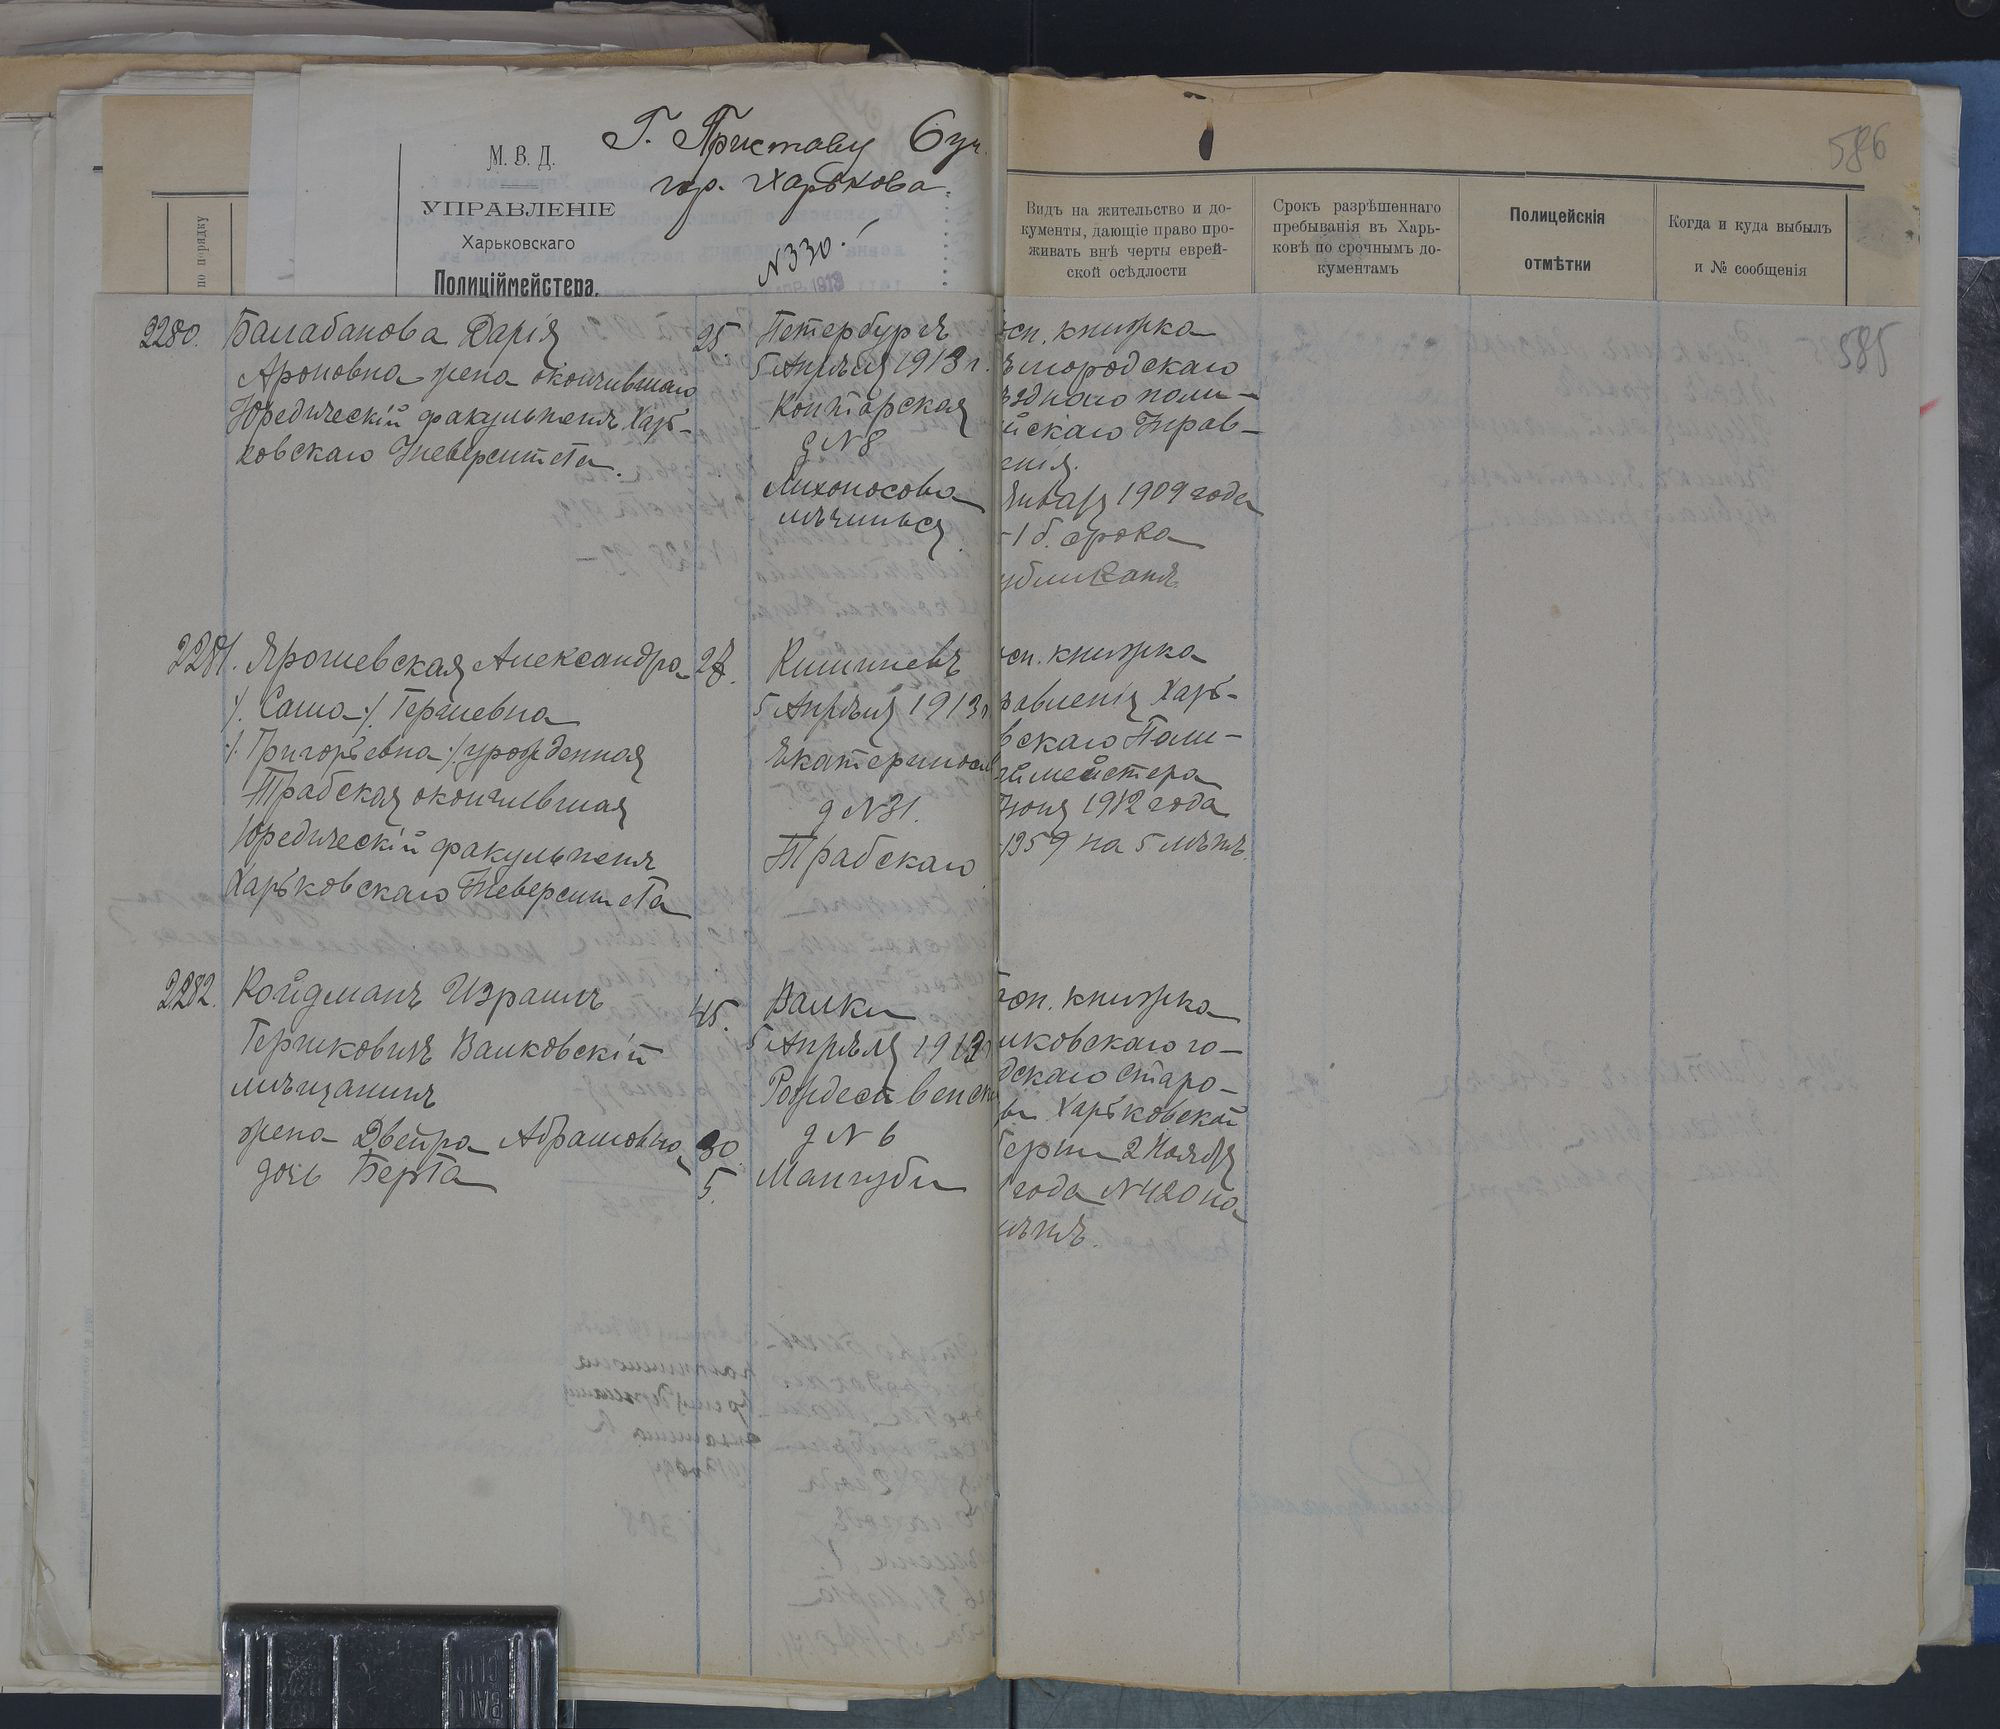 М. В. Д.
УПРАВЛЕНІЕ
Харьковскаго
Полиційместера.
Г. Приставу 6 уч.
гор. Харькова.
N 330.
1913
по порядку
586
Видъ на жительство и до-
кументы, дающіе право про-
живать внѣ черты еврей-
ской осѣдлости
Срокъ разрѣшеннаго
пребыванія въ Харь-
ковѣ по срочнымъ до-
кументамъ
Полицейскія
отмѣтки
Когда и куда выбылъ
и № сообщенія
585
2280. Балабанова Дарія
Ароновна жена окончившаго
Юредическій факультетъ Харь-
ковскаго Уневерситета.
25.
Петербургъ
5 Апрѣля 1913 г.
Конторская
д N 8
Лихоносова
мѣчинься
сп. книжка
ѣлгородскаго
ѣзднаго поли-
йскаго Управ-
енія.
Января 1909 года
-1 б. срока
2281. Ярошевская Александра
/. Саша ./ Гершевна
/. Григорьевна ./ урожденная
Трабская окончившая
Юредическій факультетъ
Харьковскаго Уневерситета
Кишиневъ
5 Апрѣля 1913 г
Екатеринослав
д N 31.
Трабскаго
сп. книжка
равленія Харь-
вскаго Поли-
іймейстера
Іюня 1912 года
1359 на 5 лѣтъ.
2282. Койдманъ Израиль
Гершковичъ Валковскій
мѣщанинъ
жена Двейра Абрамовна
дочь Берта
45.
30.
5.
Валки
5 Апрѣля 1913 г
Рождественск
д N 6
Мангуби
сп. книжка
лковскаго го-
дскаго старо-
ы Харьковской
берни 2 Ноября
года N 420 на
лѣтъ.